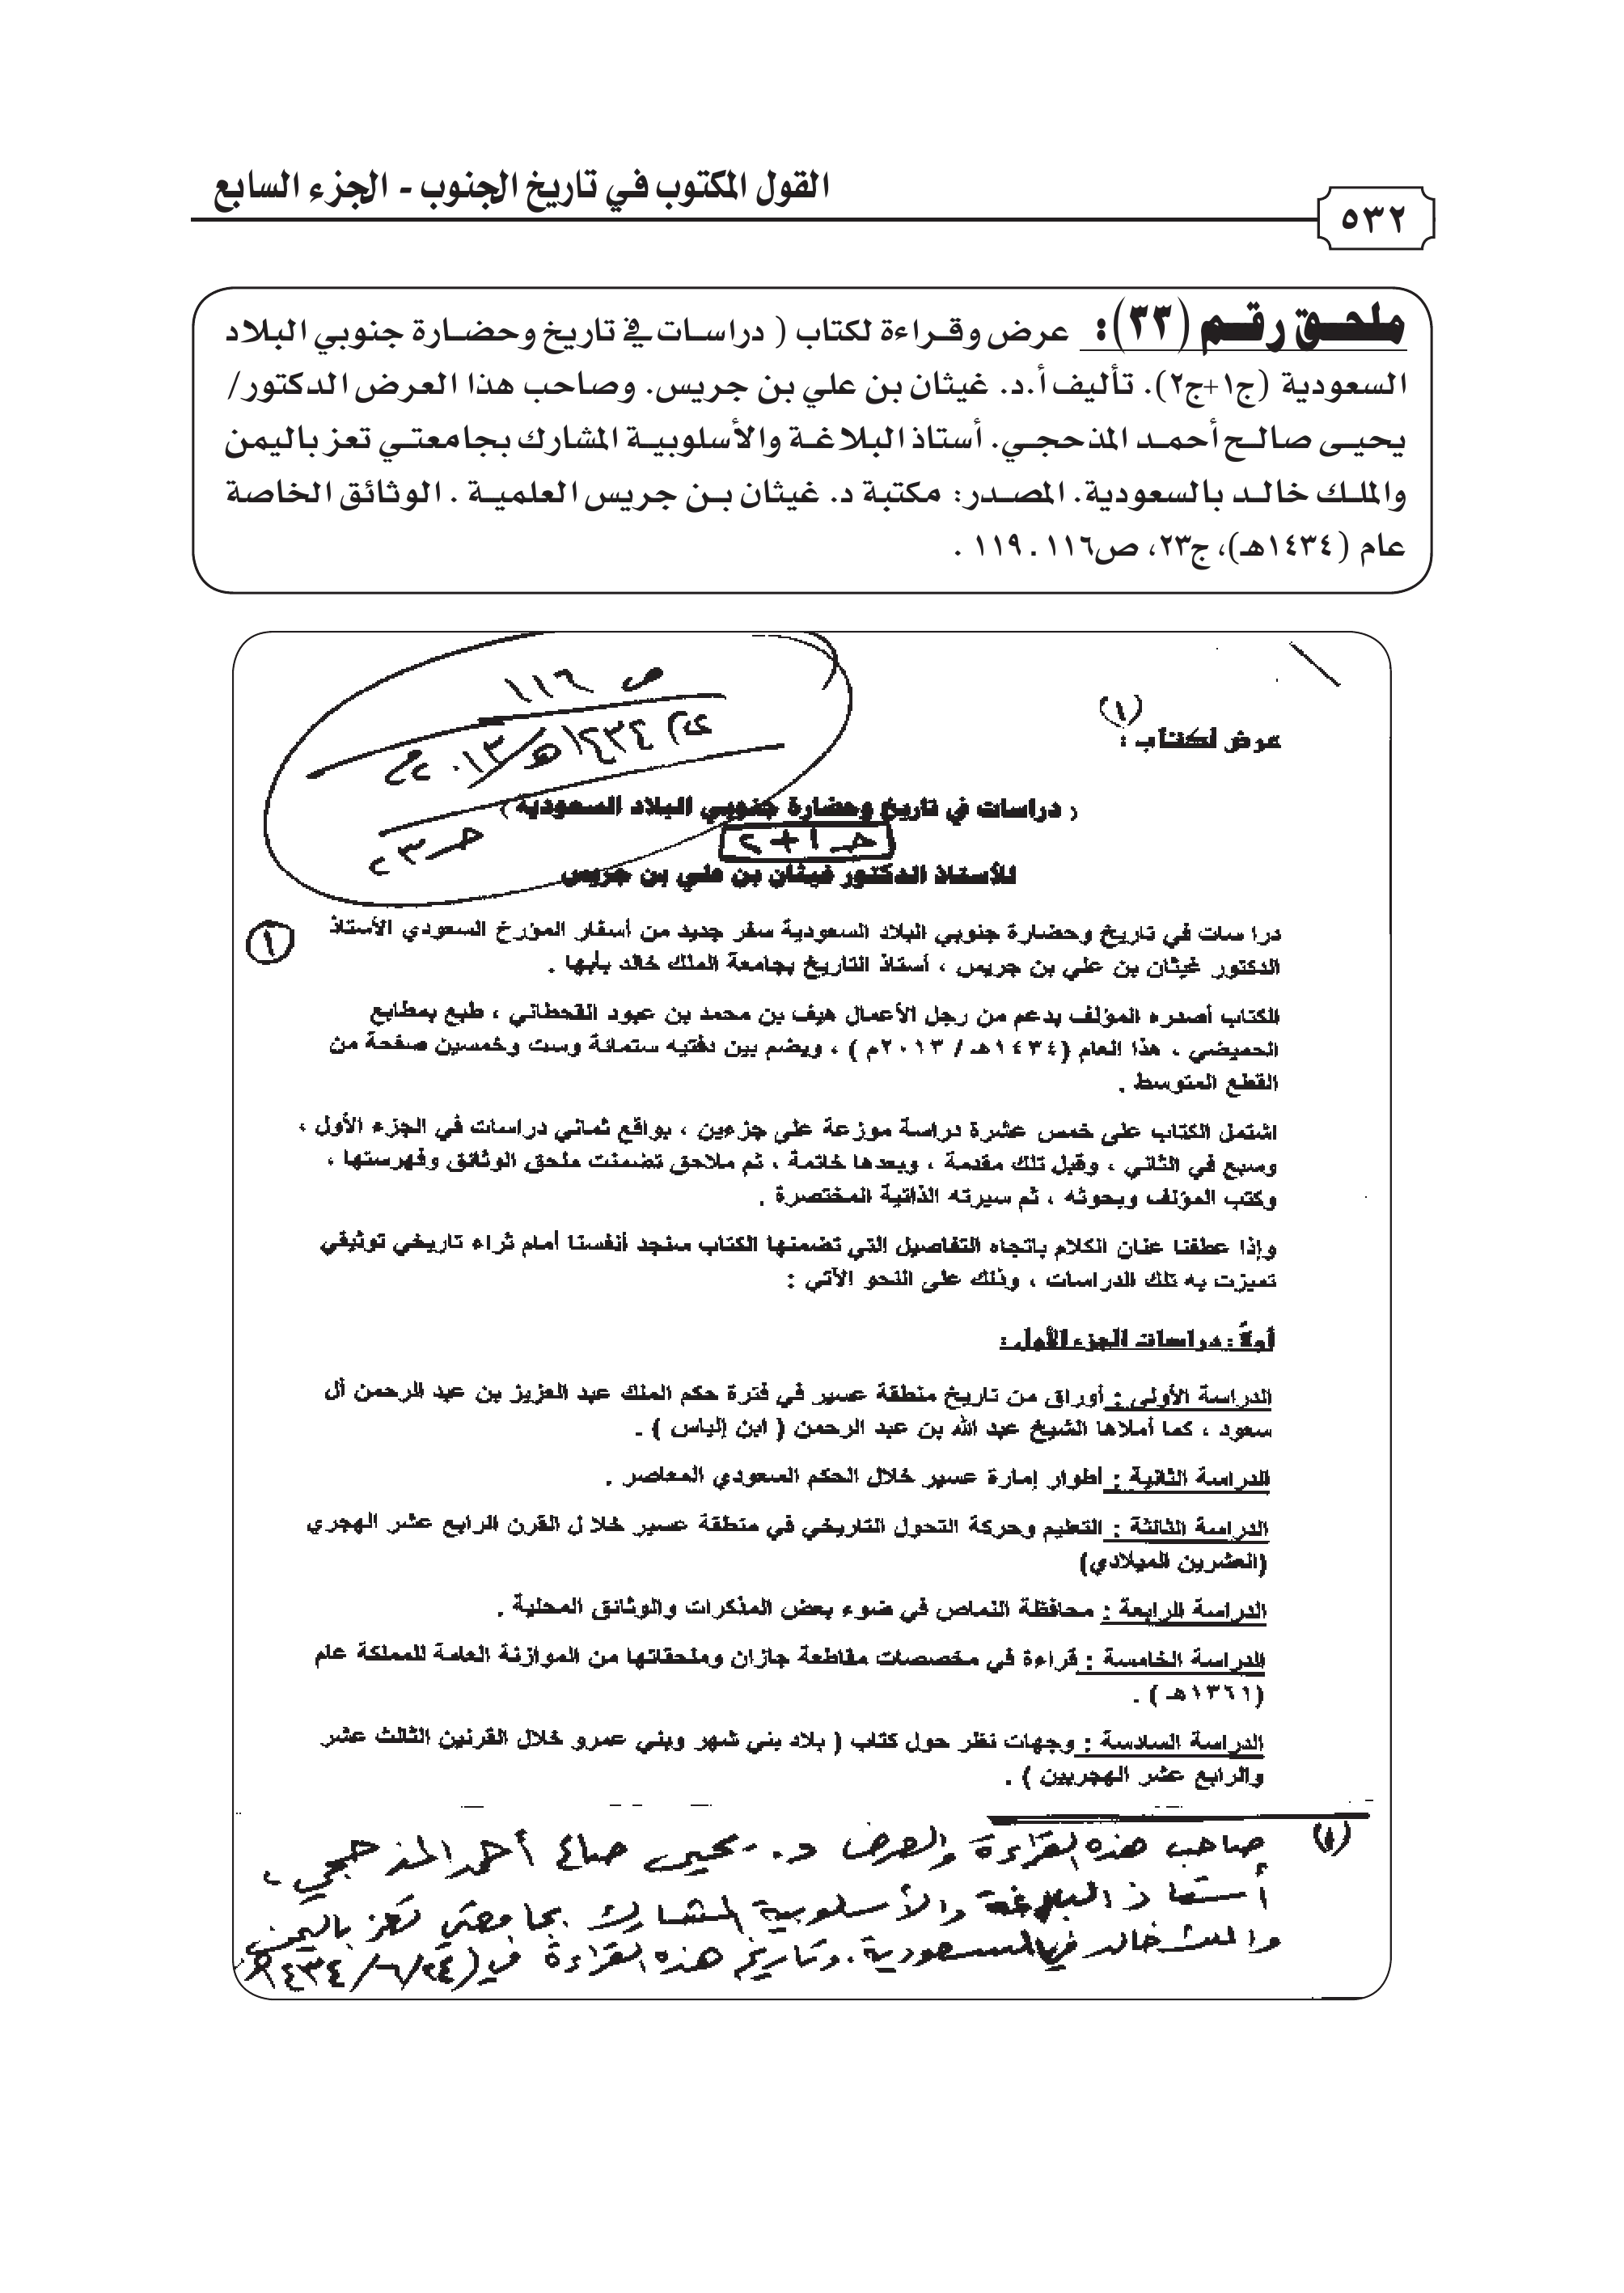 القول المكتوب في تاريخ الجنوب - الجزء السابع
٥٣٢
ملحق رقم (٣٣): عرض وقراءة لكتاب ( دراسات في تاريخ وحضارة جنوبي البلاد
السعودية (ج١+ج٢). تأليف أ.د. غيثان بن علي بن جريس. وصاحب هذا العرض الدكتور/
يحيى صالح أحمد المذحجي. أستاذ البلاغة والأسلوبية المشارك بجامعتي تعز باليمن
والملك خالد بالسعودية. المصدر: مكتبة د. غيثان بن جريس العلمية . الوثائق الخاصة
عام (١٤٣٤هـ)، ج٢٣، ص١١٦ . ١١٩ .
ص ١١٦
١٤٣٤هـ/٢٠١٣م
جـ ٢٣
(١)
عرض لكتاب :
( دراسات في تاريخ وحضارة جنوبي البلاد السعودية )
جـ ١ + ٢
للأستاذ الدكتور غيثان بن علي بن جريس
١
درا سات في تاريخ وحضارة جنوبي البلاد السعودية سفر جديد من أسفار المؤرخ السعودي الأستاذ
الدكتور غيثان بن علي بن جريس ، أستاذ التاريخ بجامعة الملك خالد بأبها .
الكتاب أصدره المؤلف بدعم من رجل الأعمال هيف بن محمد بن عبود القحطاني ، طبع بمطابع
الحميضي ، هذا العام (١٤٣٤هـ / ٢٠١٣م ) ، ويضم بين دفتيه ستمائة وست وخمسين صفحة من
القطع المتوسط .
اشتمل الكتاب على خمس عشرة دراسة موزعة على جزءين ، بواقع ثماني دراسات في الجزء الأول ،
وسبع في الثاني ، وقبل تلك مقدمة ، وبعدها خاتمة ، ثم ملاحق تضمنت ملحق الوثائق وفهرستها ،
وكتب المؤلف وبحوثه ، ثم سيرته الذاتية المختصرة .
وإذا عطفنا عنان الكلام باتجاه التفاصيل التي تضمنها الكتاب سنجد أنفسنا أمام ثراء تاريخي توثيقي
تميزت به تلك الدراسات ، وذلك على النحو الآتي :
أولاً : دراسات الجزء الأول :
الدراسة الأولى : أوراق من تاريخ منطقة عسير في فترة حكم الملك عبد العزيز بن عبد الرحمن آل
سعود ، كما أملاها الشيخ عبد الله بن عبد الرحمن ( ابن إلياس ) .
الدراسة الثانية : أطوار إمارة عسير خلال الحكم السعودي المعاصر .
الدراسة الثالثة : التعليم وحركة التحول التاريخي في منطقة عسير خلا ل القرن الرابع عشر الهجري
(العشرين الميلادي)
الدراسة الرابعة : محافظة النماص في ضوء بعض المذكرات والوثائق المحلية .
الدراسة الخامسة : قراءة في مخصصات مقاطعة جازان وملحقاتها من الموازنة العامة للمملكة عام
(١٣٦١هـ ) .
الدراسة السادسة : وجهات نظر حول كتاب ( بلاد بني شهر وبني عمرو خلال القرنين الثالث عشر
والرابع عشر الهجريين ) .
(١) صاحب هذه القراءة والعرض د. يحيى صالح أحمد المذحجي ،
أستاذ البلاغة والأسلوبية المشارك بجامعتي تعز باليمن
والملك خالد بالسعودية . وتاريخ هذه القراءة في (٢٤/٦/١٤٣٤هـ)